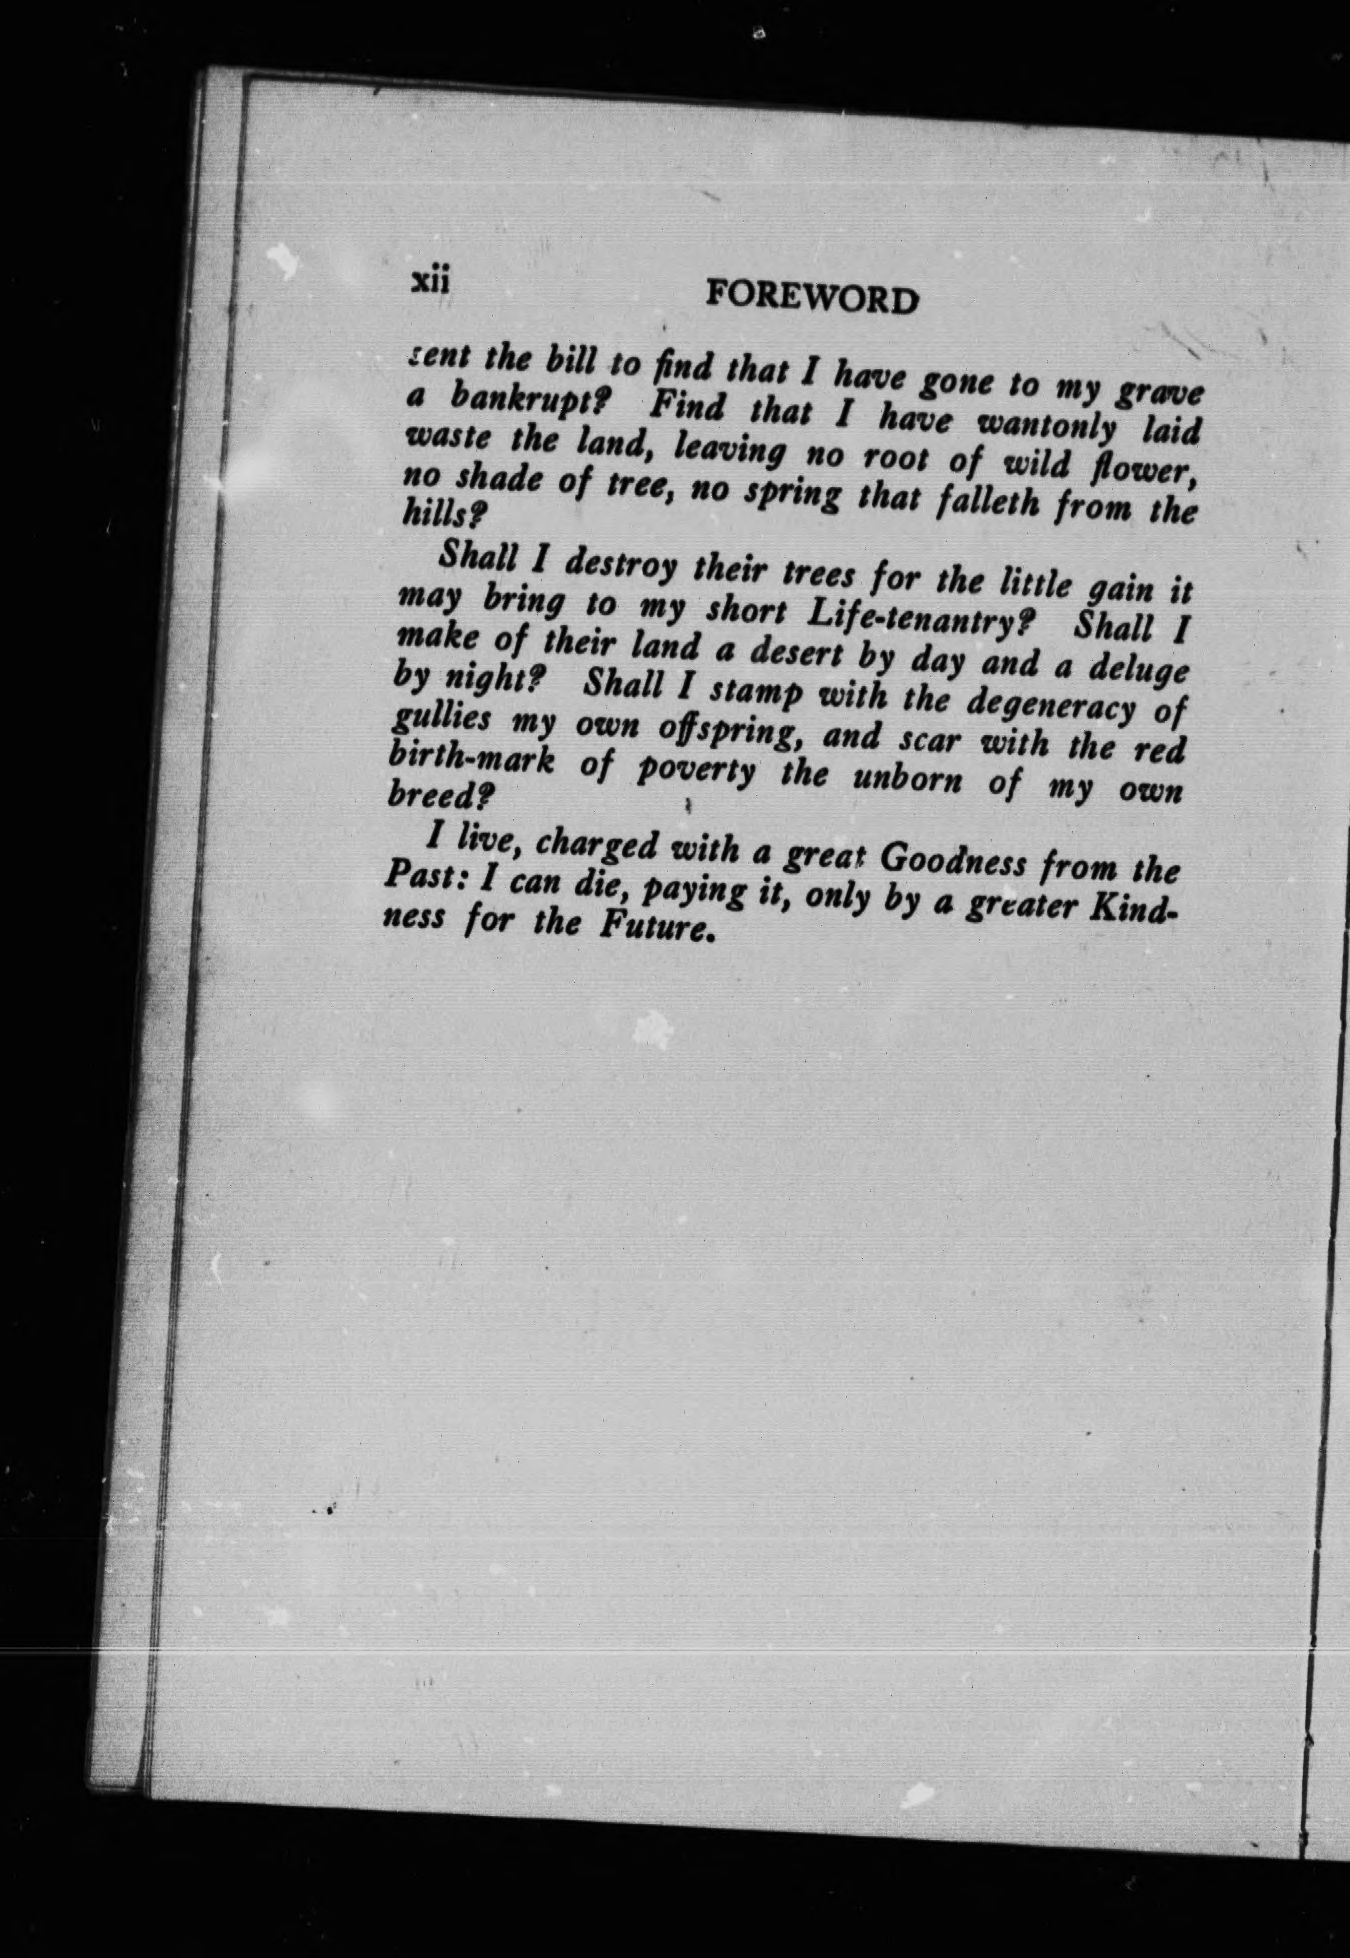 xii FOREWORD
sent the bill to find that I have gone to my grave
a bankrupt? Find that I have wantonly laid
waste the land, leaving no root of wild flower,
no shade of tree, no spring that falleth from the
hills?
Shall I destroy their trees for the little gain it
may bring to my short Life-tenantry? Shall I
make of their land a desert by day and a deluge
by night? Shall I stamp with the degeneracy of
gullies my own offspring, and scar with the red
birth-mark of poverty the unborn of my own
breed?
I live, charged with a great Goodness from the
Past: I can die, paying it, only by a greater Kind-
ness for the Future.